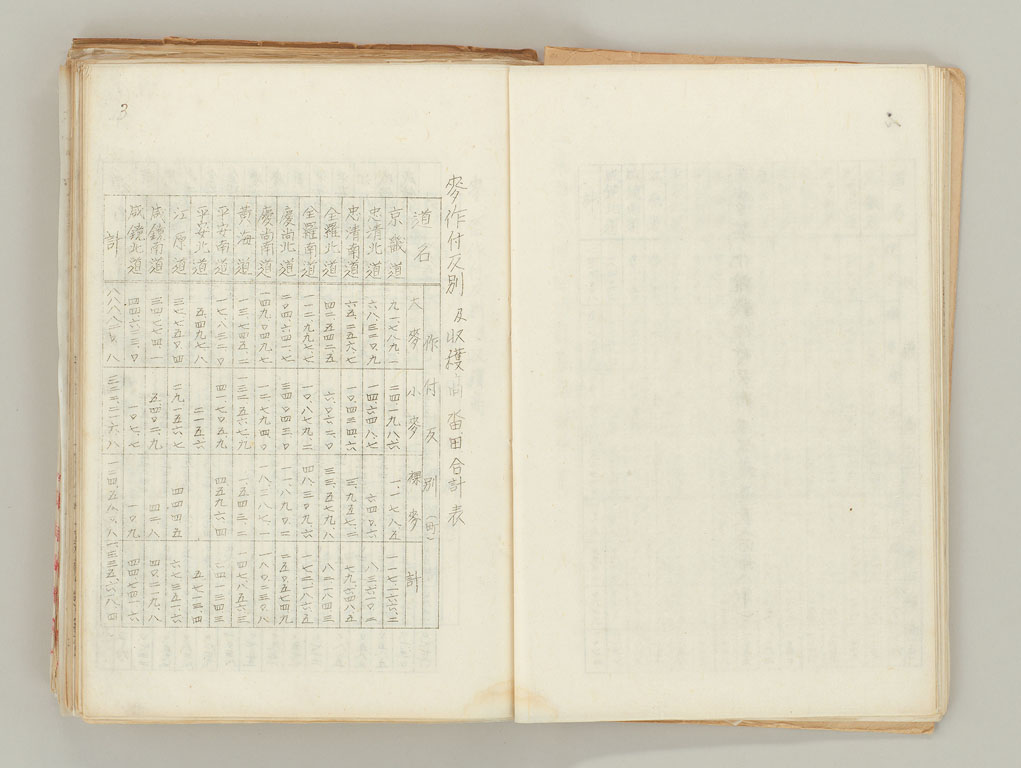 3
麥作付反別及収穫高 畓田合計表
道名 作付反別(町) 大麥 小麥 裸麥 計
京畿道 九一七八九.一 二四一九八.六 一一七八.五 一一七一六六.二
忠清北道 六八三二〇.九 一四六四八.七 六四〇.六 八三六一〇.二
忠清南道 六五二五六.七 一〇四三四.六 三九五七.二 七九六四八.五
全羅北道 四二五四二.五 六〇六二.〇 三三五七九.八 八二一八四.三
全羅南道 一一二九九七.七 一〇八七九.二 四八三〇九.六 一七二一八六.五
慶尚北道 二〇四六四一.七 三四〇四三.〇 一一八九〇.二 二五〇五七四.九
慶尚南道 一四九〇四九.七 一二七九四.〇 一八三八七.一 一八〇二三〇.八
黄海道 一三七四五.二 一三二五六七.九 一五四三.二 一四七八五六.三
平安南道 一七八三二.〇 四一七〇五.九 四五九六.四 六四一三四.三
平安北道 五四九七.八 二一五.六 五七一三.四
江原道 三七七五〇.四 二九一五六.七 四四四.五 六七三五一.六
咸鏡南道 三四七七四.一 五四〇二.九 四二.八 四〇二一九.八
咸鏡北道 四四六二三.〇 一〇七.七 一〇.九 四四七四一.六
計 八八八八二〇.八 三二二二一六.八 一二四五八〇.八 一三三五六一八.四